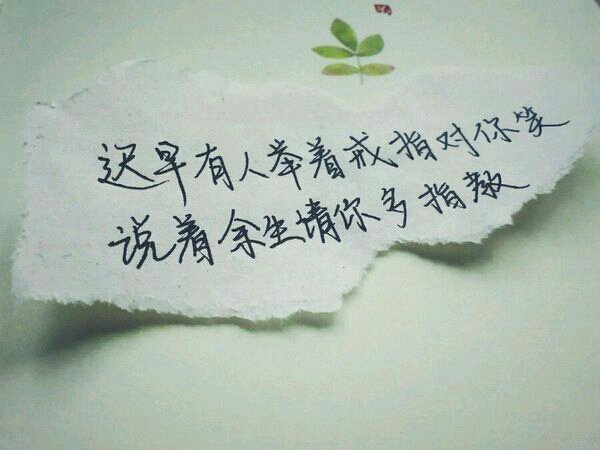 迟早有人举着戒指对你笑
说着余生请你多指教